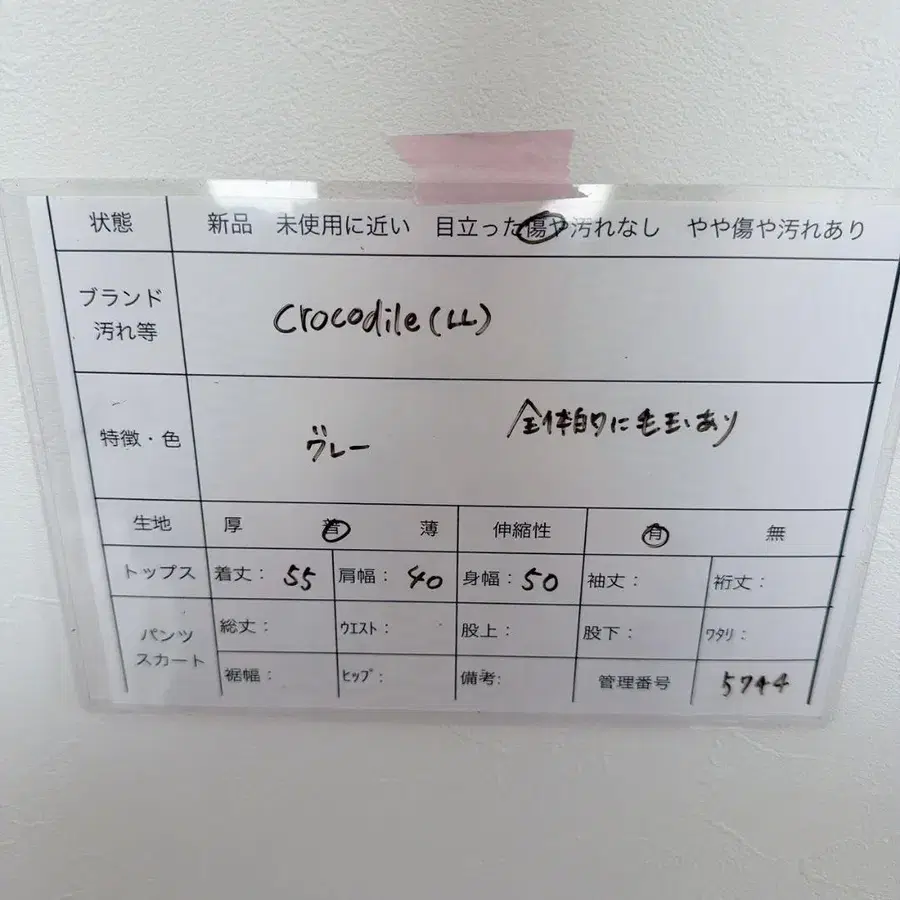 状態 新品 未使用に近い 目立った傷や汚れなし やや傷や汚れあり
ブランド
汚れ等
Crocodile(LL)
特徴・色
グレー
全体的に毛玉あり
生地 厚 普 薄 伸縮性 有 無
トップス 着丈: 55 肩幅: 40 身幅: 50 袖丈: 裄丈:
パンツ
スカート
総丈: ウエスト: 股上: 股下: ワタリ:
裾幅: ヒップ: 備考: 管理番号 5744